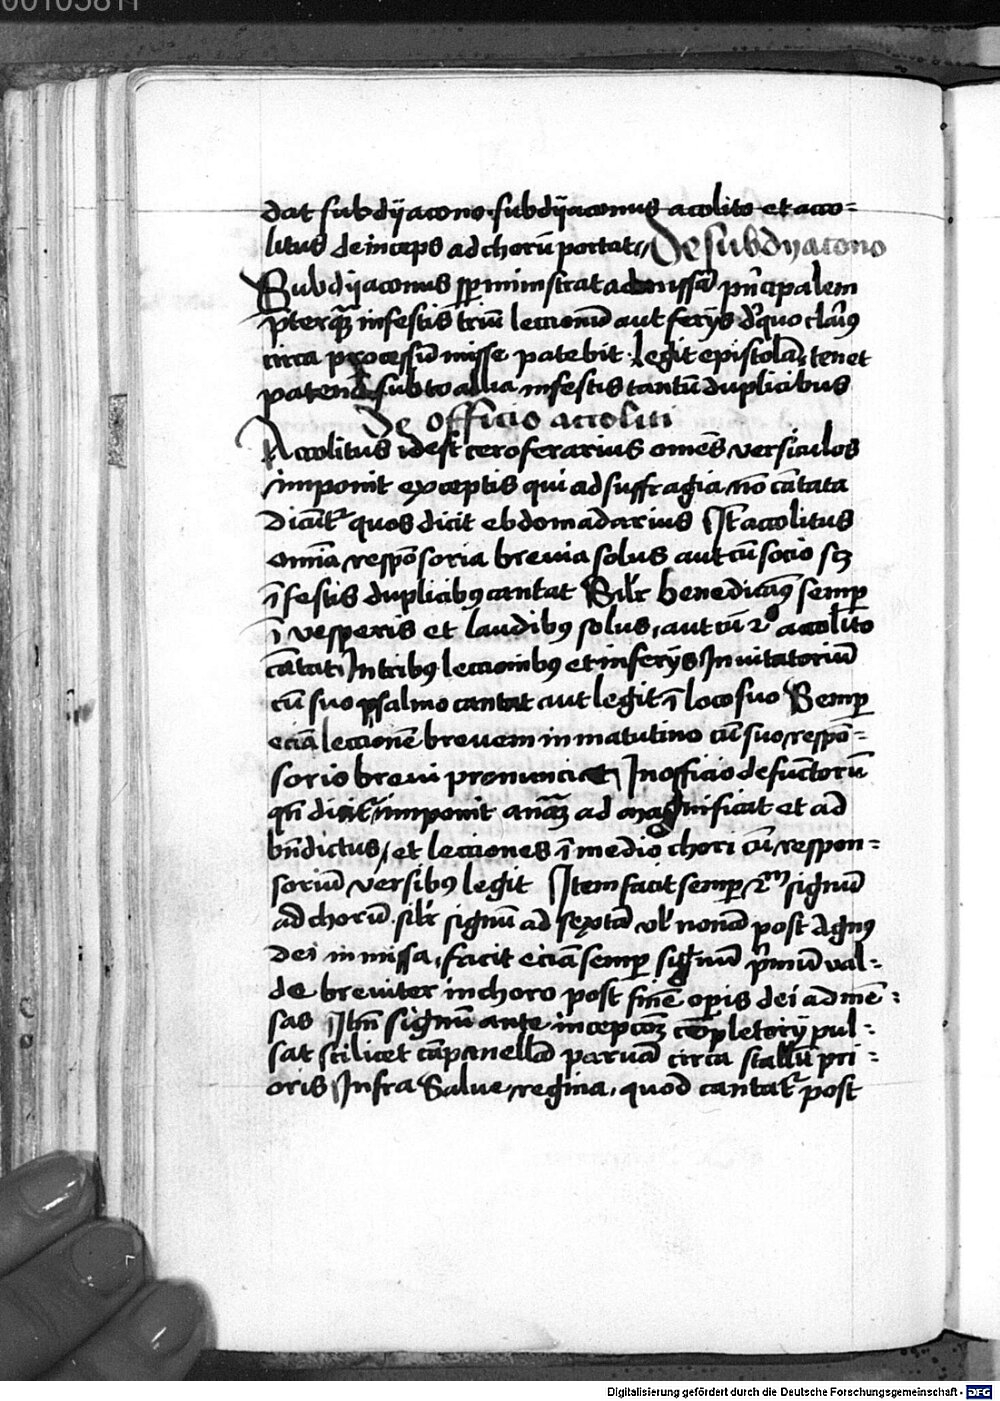 00105811
dat subdÿacono · subdÿaconus acolito et acco=
litus deinceps ad chorū portat // De subdyacono
Subdÿaconus sp̄ ministrat ad missā pn̄cipalem
p̄terq̄ȝ in festis triū leccionū aut ferÿs d' quo clariꝰ
circa processū misse patebit · legit epistolā, tenet
patenā sub toallia in festis tantū duplicibus
De officio accoliti
Accolitus id est ceroferarius omēs versiculos
imponit exceptis qui ad suffragia nō cātata
dicūtr quos dicit ebdomadarius It̄ accolitus
omīa respōsoria brevia solus aut cū socio scȝ
ī festis duplicibꝰ cantat Silr benedicamꝰ semp
ī vesperis et laudibꝰ solus, aut cū 2º accolito
cātatur In tribꝰ leccionibꝰ et in ferÿs Invitatoriū
cū suo psalmo cantat aut legit ī loco suo Semp
eciā leccionē brevem in matutino cū suo respō=
sorio brevi pronunciat In officio defūctorū
qn̄ dicitr imponit an̄aȝ ad magnificat et ad
bn̄dictus, et lecciones ī medio chori cū respon=
soriū versibꝰ legit Item facit semp 2m signū
ad chorū · silr signū ad sextā vl' nonā post Agnꝰ
dei in missa, facit eciā semp signū p̄mū val=
de breviter in choro post finē opis dei ad mē=
sas Itm̄ signū ante incepcōeȝ cōpletorÿ pul=
sat scilicet cāpanellā parvā circa stallū pri=
oris Infra Salve regina, quod cantatr post
Digitalisierung gefördert durch die Deutsche Forschungsgemeinschaft - DFG